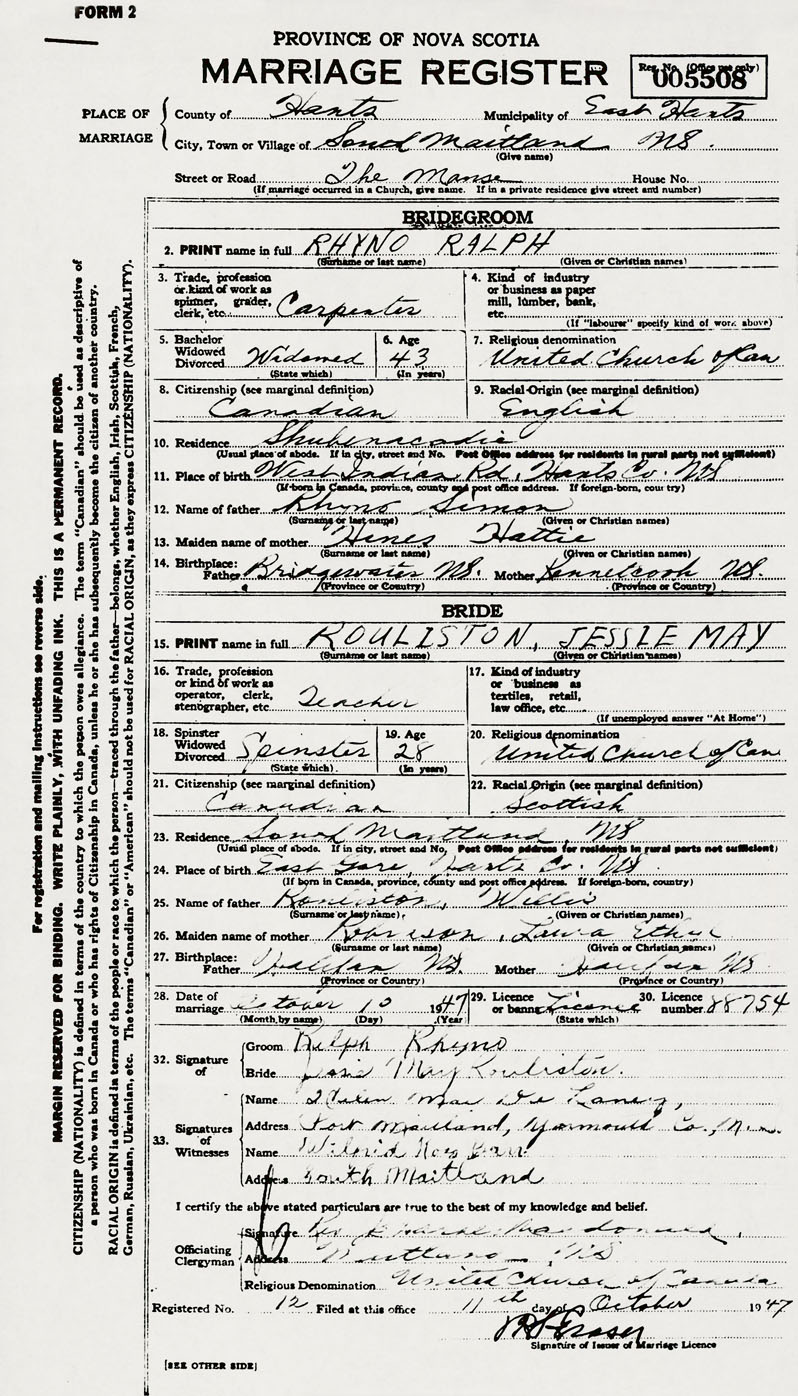 FORM 2
PROVINCE OF NOVA SCOTIA
MARRIAGE REGISTER
Reg. No. (Office use only)
005508
PLACE OF MARRIAGE
County of Hants Municipality of East Hants
City, Town or Village of South Maitland NS.
(Give name)
Street or Road The Manse House No.
(If marriage occurred in a Church, give name. If in a private residence give street and number)
BRIDEGROOM
2. PRINT name in full RHYNO RALPH
(Surname or last name) (Given or Christian names)
3. Trade, profession or kind of work as spinner, grader, clerk, etc. Carpenter
4. Kind of industry or business as paper mill, lumber, bank, etc.
(If "labourer" specify kind of work above)
5. Bachelor Widowed Divorced Widowed
(State which)
6. Age 43
(In years)
7. Religious denomination
United Church of Can
8. Citizenship (see marginal definition)
Canadian
9. Racial Origin (see marginal definition)
English
10. Residence Shubenacadie
(Usual place of abode. If in city, street and No. Post Office address for residents in rural parts not sufficient)
11. Place of birth West Indian Rd, Hants Co. NS
(If born in Canada, province, county and post office address. If foreign-born, country)
12. Name of father Rhyno Simon
(Surname or last name) (Given or Christian names)
13. Maiden name of mother Hines Hattie
(Surname or last name) (Given or Christian names)
14. Birthplace:
Father Bridgewater NS. Mother Kennetcook NS.
(Province or Country) (Province or Country)
BRIDE
15. PRINT name in full ROULISTON, JESSIE MAY
(Surname or last name) (Given or Christian names)
16. Trade, profession or kind of work as operator, clerk, stenographer, etc. Teacher
17. Kind of industry or business as textiles, retail, law office, etc.
(If unemployed answer "At Home")
18. Spinster Widowed Divorced Spinster
(State which)
19. Age 28
(In years)
20. Religious denomination
United Church of Can
21. Citizenship (see marginal definition)
Canadian
22. Racial Origin (see marginal definition)
Scottish
23. Residence South Maitland, NS
(Usual place of abode. If in city, street and No. Post Office address for residents in rural parts not sufficient)
24. Place of birth East Gore, Hants Co. NS
(If born in Canada, province, county and post office address. If foreign-born, country)
25. Name of father Rouliston, Willis
(Surname or last name) (Given or Christian names)
26. Maiden name of mother Robinson, Laura Ethel
(Surname or last name) (Given or Christian names)
27. Birthplace:
Father Halifax NS. Mother Halifax NS
(Province or Country) (Province or Country)
28. Date of marriage October 10 1947
(Month by name) (Day) (Year)
29. Licence or banns License
(State which)
30. Licence number 88754
32. Signature of
Groom Ralph Rhyno
Bride Jessie May Rouliston.
33. Signatures of Witnesses
Name Mae De Laney,
Address Port Maitland, Yarmouth Co., N.S.
Name Wilfrid Roy
Address South Maitland
I certify the above stated particulars are true to the best of my knowledge and belief.
Officiating Clergyman
Signature Rev. Macdonald,
Address Maitland, NS
Religious Denomination United Church of Canada
Registered No. 12 Filed at this office 11th day of October 1947
Fraser
Signature of Issuer of Marriage Licence
[SEE OTHER SIDE]
For registration and mailing instructions see reverse side.
MARGIN RESERVED FOR BINDING. WRITE PLAINLY, WITH UNFADING INK. THIS IS A PERMANENT RECORD.
CITIZENSHIP (NATIONALITY) is defined in terms of the country to which the person owes allegiance. The term "Canadian" should be used as descriptive of
a person who was born in Canada or who has rights of Citizenship in Canada, unless he or she has subsequently become the citizen of another country.
RACIAL ORIGIN is defined in terms of the people or race to which the person—traced through the father—belongs, whether English, Irish, Scottish, French,
German, Russian, Ukrainian, etc. The terms "Canadian" or "American" should not be used for RACIAL ORIGIN, as they express CITIZENSHIP (NATIONALITY).